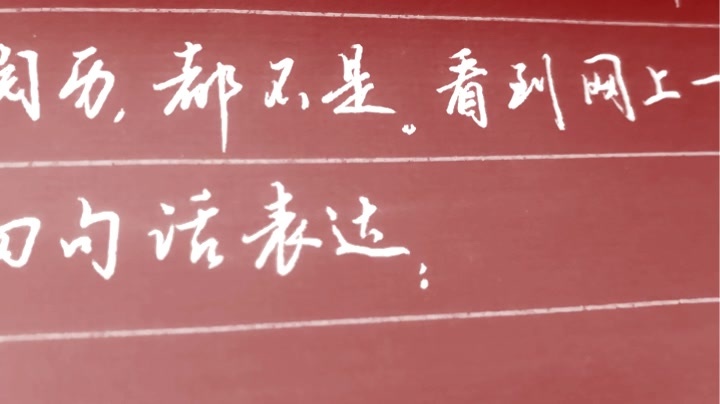 阅历,都不是。看到网上一
句话表达: